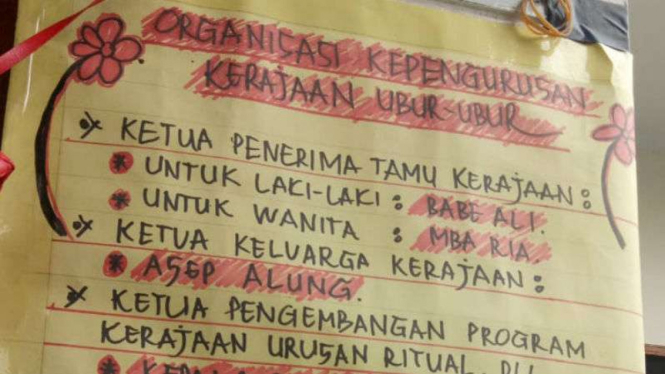 ORGANISASI KEPENGURUSAN
KERAJAAN UBUR-UBUR
KETUA PENERIMA TAMU KERAJAAN :
* UNTUK LAKI-LAKI : BABE ALI.
* UNTUK WANITA : MBA RIA.
KETUA KELUARGA KERAJAAN :
* ASEP ALUNG.
KETUA PENGEMBANGAN PROGRAM
KERAJAAN URUSAN RITUAL